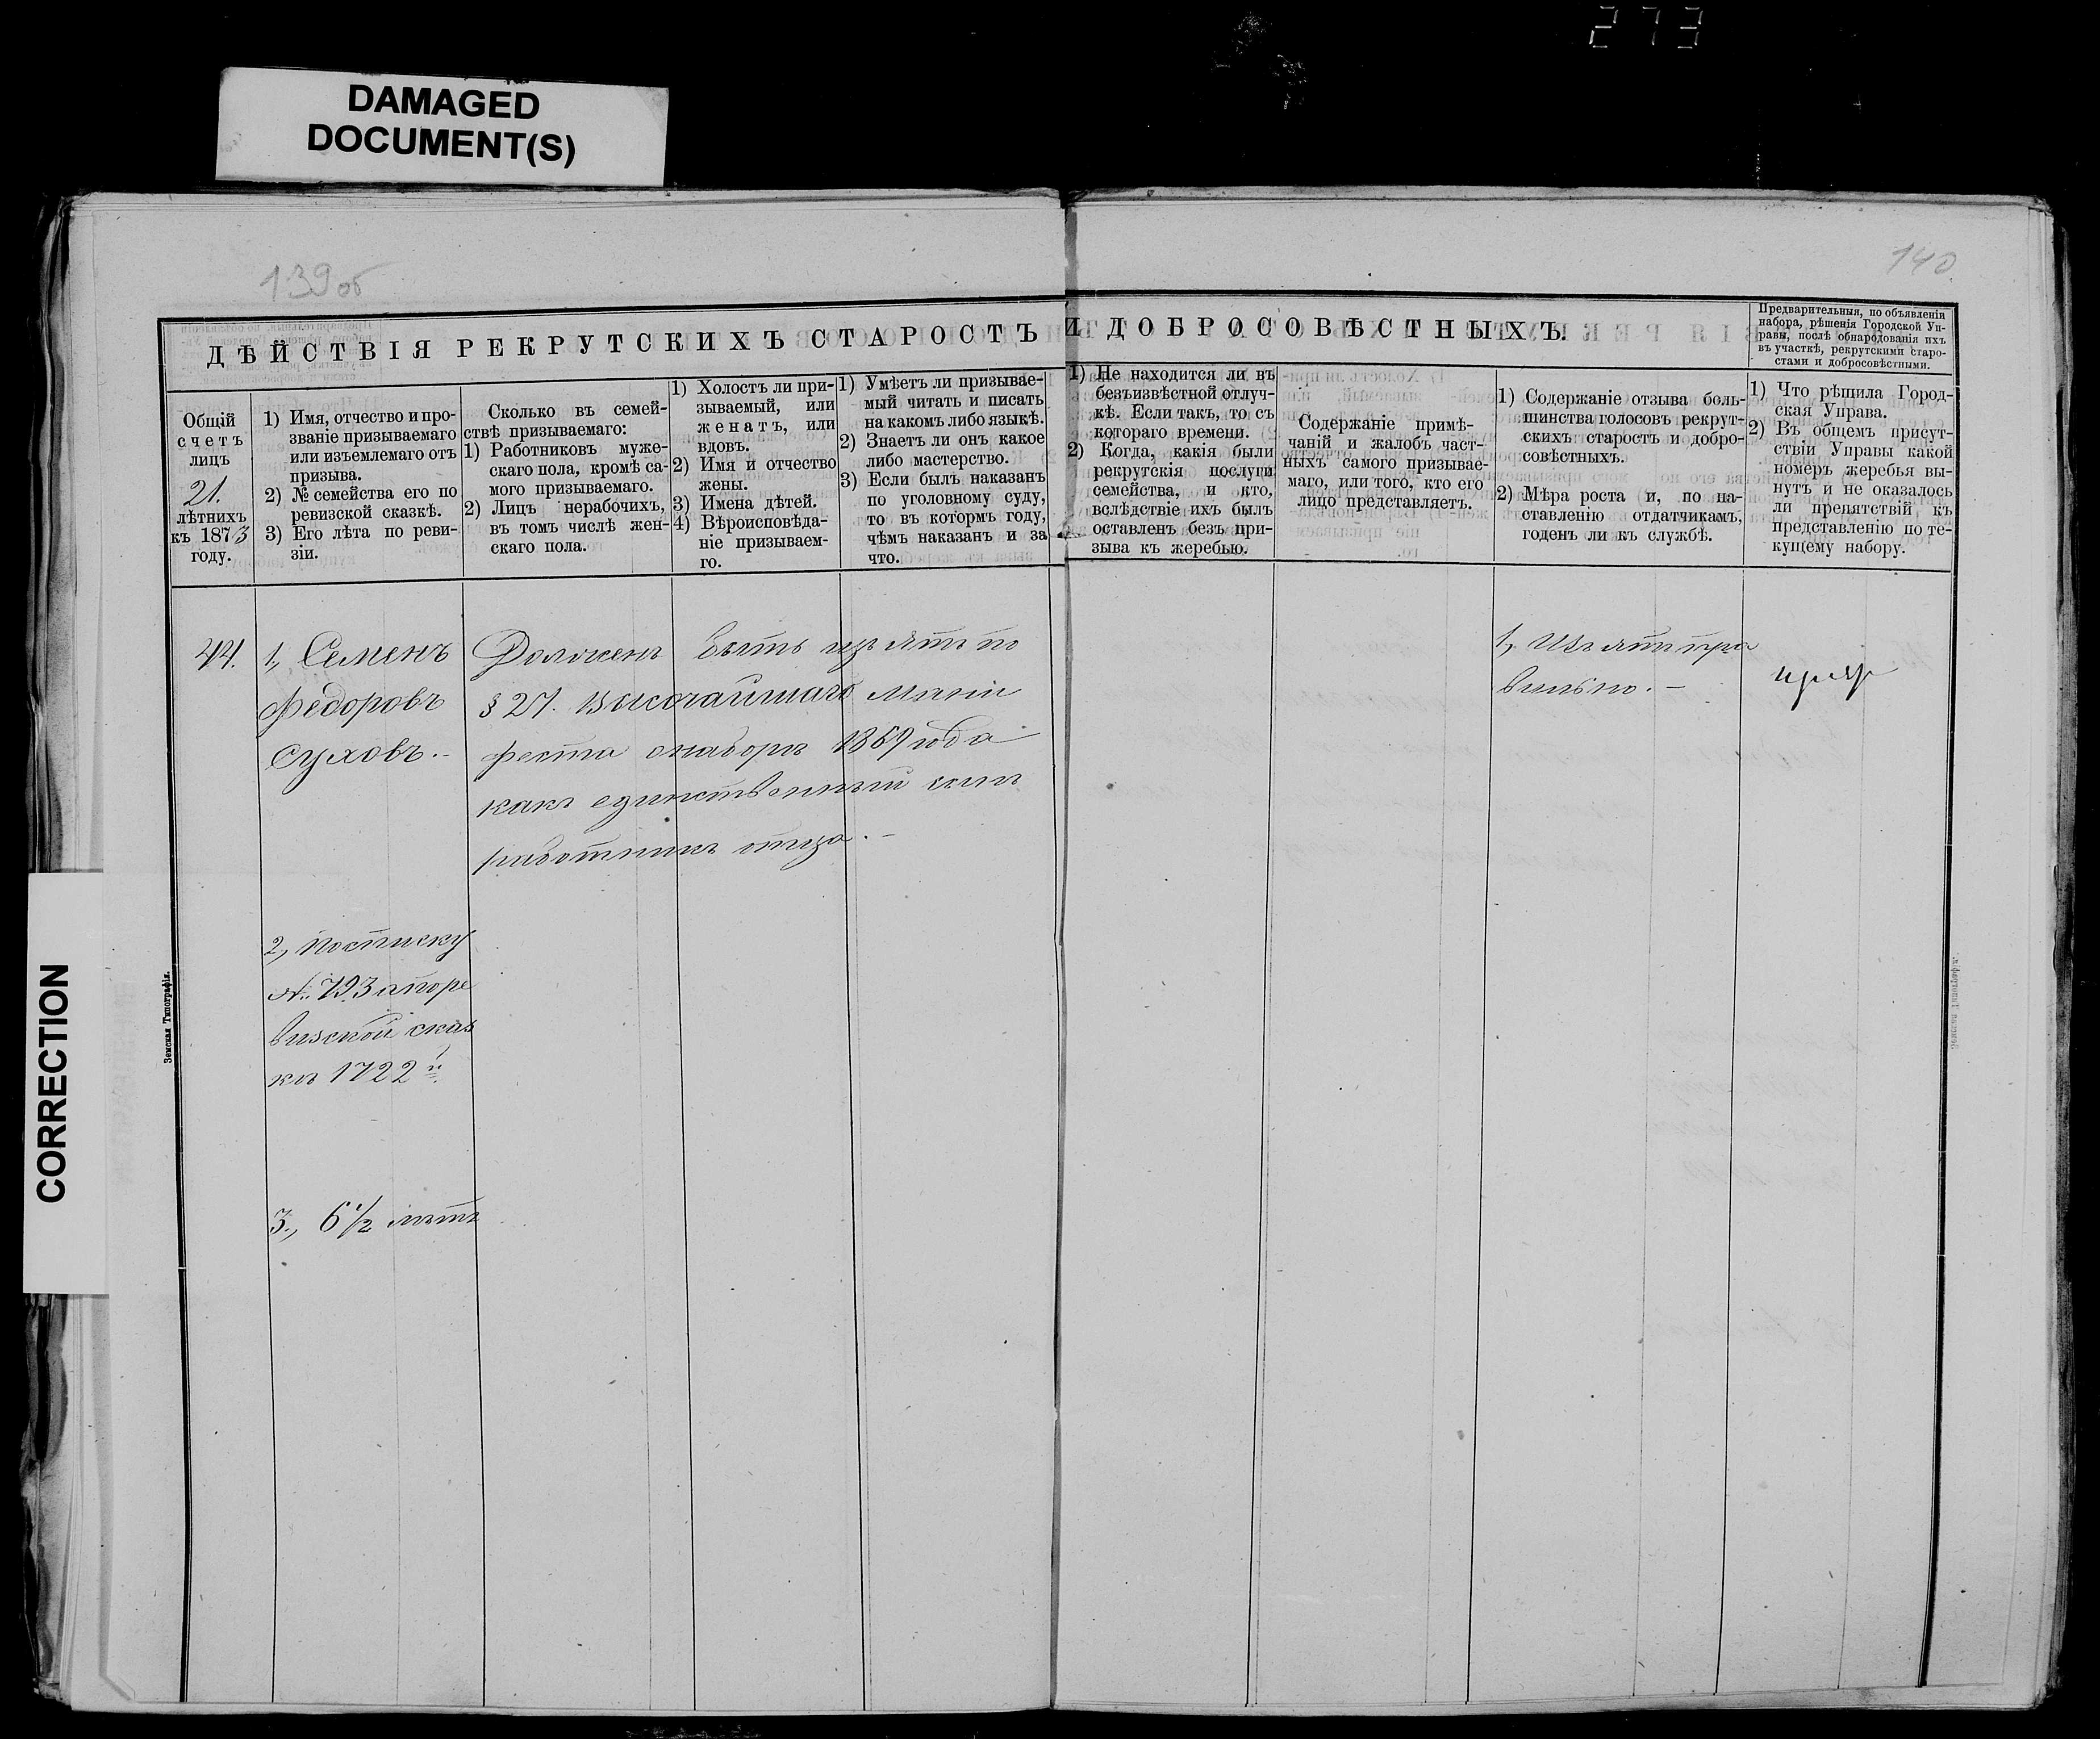 273
DAMAGED
DOCUMENT(S)
139 об
140
ДѢЙСТВІЯ РЕКРУТСКИХЪ СТАРОСТЪ И ДОБРОСОВѢСТНЫХЪ.
Предварительныя, по объявленіи
набора, рѣшенія Городской Уп-
равы, послѣ обнародованія ихъ
въ участкѣ, рекрутскими старо-
стами и добросовѣстными.
Общій
счетъ
лицъ
21.
лѣтнихъ
къ 1873
году.
1) Имя, отчество и про-
званіе призываемаго
или изъемлемаго отъ
призыва.
2) № семейства его по
ревизской сказкѣ.
3) Его лѣта по реви-
зіи.
Сколько въ семей-
ствѣ призываемаго:
1) Работниковъ муже-
скаго пола, кромѣ са-
мого призываемаго.
2) Лицъ нерабочихъ,
въ томъ числѣ жен-
скаго пола.
1) Холостъ ли при-
зываемый, или
женатъ, или
вдовъ.
2) Имя и отчество
жены.
3) Имена дѣтей.
4) Вѣроисповѣда-
ніе призываем-
го.
1) Умѣетъ ли призывае-
мый читать и писать
на какомъ либо языкѣ.
2) Знаетъ ли онъ какое
либо мастерство.
3) Если былъ наказанъ
по уголовному суду,
то въ котормъ году,
чѣмъ наказанъ и за
что.
1) Не находится ли въ
безъизвѣстной отлуч-
кѣ. Если такъ, то съ
котораго времени.
2) Когда, какія были
рекрутскія послуги
семейства, и кто,
вслѣдствіе ихъ былъ
оставленъ безъ при-
зыва къ жеребью.
Содержаніе примѣ-
чаній и жалобъ част-
ныхъ самого призывае-
маго, или того, кто его
лицо представляетъ.
1) Содержаніе отзыва боль-
шинства голосовъ рекрут-
скихъ старостъ и добро-
совѣстныхъ.
2) Мѣра роста и, по на-
ставленію отдатчикамъ,
годенъ ли къ службѣ.
1) Что рѣшила Город-
ская Управа.
2) Въ общемъ присут-
ствіи Управы какой
номеръ жеребья вы-
нутъ и не оказалось
ли препятствій къ
представленію по те-
кущему набору.
44.
1, Семенъ
Федоровъ
Суховъ.
2, Посписку
№ 793 а поре
визской сказ
кѣ 1722 й
3, 6 1/2 лѣтъ
Долженъ быть изъятъ по
§ 27. Высочайшаго мани
феста о наборѣ 1869 года
какъ единственный сынъ
работникъ отца. —
1, Изъятъ пра
вильно. —
Земская Типографія.
CORRECTION